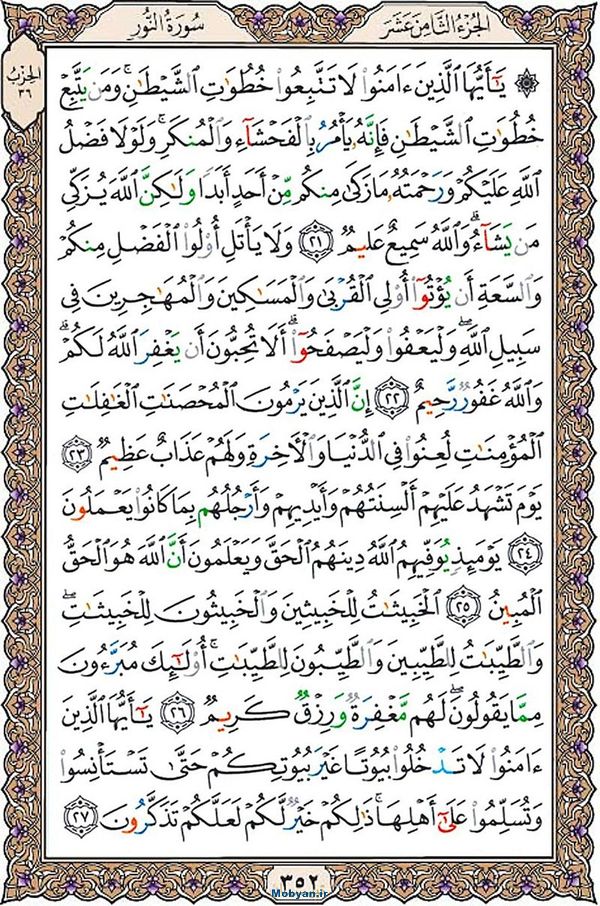 الجزء الثامن عشر
سورة النور
الحزب
٣٦
۞ يَٰٓأَيُّهَا ٱلَّذِينَ ءَامَنُوا۟ لَا تَتَّبِعُوا۟ خُطُوَٰتِ ٱلشَّيْطَٰنِ ۚ وَمَن يَتَّبِعْ
خُطُوَٰتِ ٱلشَّيْطَٰنِ فَإِنَّهُۥ يَأْمُرُ بِٱلْفَحْشَآءِ وَٱلْمُنكَرِ ۚ وَلَوْلَا فَضْلُ
ٱللَّهِ عَلَيْكُمْ وَرَحْمَتُهُۥ مَا زَكَىٰ مِنكُم مِّنْ أَحَدٍ أَبَدًا وَلَٰكِنَّ ٱللَّهَ يُزَكِّى
مَن يَشَآءُ ۗ وَٱللَّهُ سَمِيعٌ عَلِيمٌ ٢١ وَلَا يَأْتَلِ أُو۟لُوا۟ ٱلْفَضْلِ مِنكُمْ
وَٱلسَّعَةِ أَن يُؤْتُوٓا۟ أُو۟لِى ٱلْقُرْبَىٰ وَٱلْمَسَٰكِينَ وَٱلْمُهَٰجِرِينَ فِى
سَبِيلِ ٱللَّهِ ۖ وَلْيَعْفُوا۟ وَلْيَصْفَحُوٓا۟ ۗ أَلَا تُحِبُّونَ أَن يَغْفِرَ ٱللَّهُ لَكُمْ ۗ
وَٱللَّهُ غَفُورٌ رَّحِيمٌ ٢٢ إِنَّ ٱلَّذِينَ يَرْمُونَ ٱلْمُحْصَنَٰتِ ٱلْغَٰفِلَٰتِ
ٱلْمُؤْمِنَٰتِ لُعِنُوا۟ فِى ٱلدُّنْيَا وَٱلْءَاخِرَةِ وَلَهُمْ عَذَابٌ عَظِيمٌ ٢٣
يَوْمَ تَشْهَدُ عَلَيْهِمْ أَلْسِنَتُهُمْ وَأَيْدِيهِمْ وَأَرْجُلُهُم بِمَا كَانُوا۟ يَعْمَلُونَ
٢٤ يَوْمَئِذٍ يُوَفِّيهِمُ ٱللَّهُ دِينَهُمُ ٱلْحَقَّ وَيَعْلَمُونَ أَنَّ ٱللَّهَ هُوَ ٱلْحَقُّ
ٱلْمُبِينُ ٢٥ ٱلْخَبِيثَٰتُ لِلْخَبِيثِينَ وَٱلْخَبِيثُونَ لِلْخَبِيثَٰتِ ۖ
وَٱلطَّيِّبَٰتُ لِلطَّيِّبِينَ وَٱلطَّيِّبُونَ لِلطَّيِّبَٰتِ ۚ أُو۟لَٰٓئِكَ مُبَرَّءُونَ
مِمَّا يَقُولُونَ ۖ لَهُم مَّغْفِرَةٌ وَرِزْقٌ كَرِيمٌ ٢٦ يَٰٓأَيُّهَا ٱلَّذِينَ
ءَامَنُوا۟ لَا تَدْخُلُوا۟ بُيُوتًا غَيْرَ بُيُوتِكُمْ حَتَّىٰ تَسْتَأْنِسُوا۟
وَتُسَلِّمُوا۟ عَلَىٰٓ أَهْلِهَا ۚ ذَٰلِكُمْ خَيْرٌ لَّكُمْ لَعَلَّكُمْ تَذَكَّرُونَ ٢٧
٣٥٢
Mobyan.ir